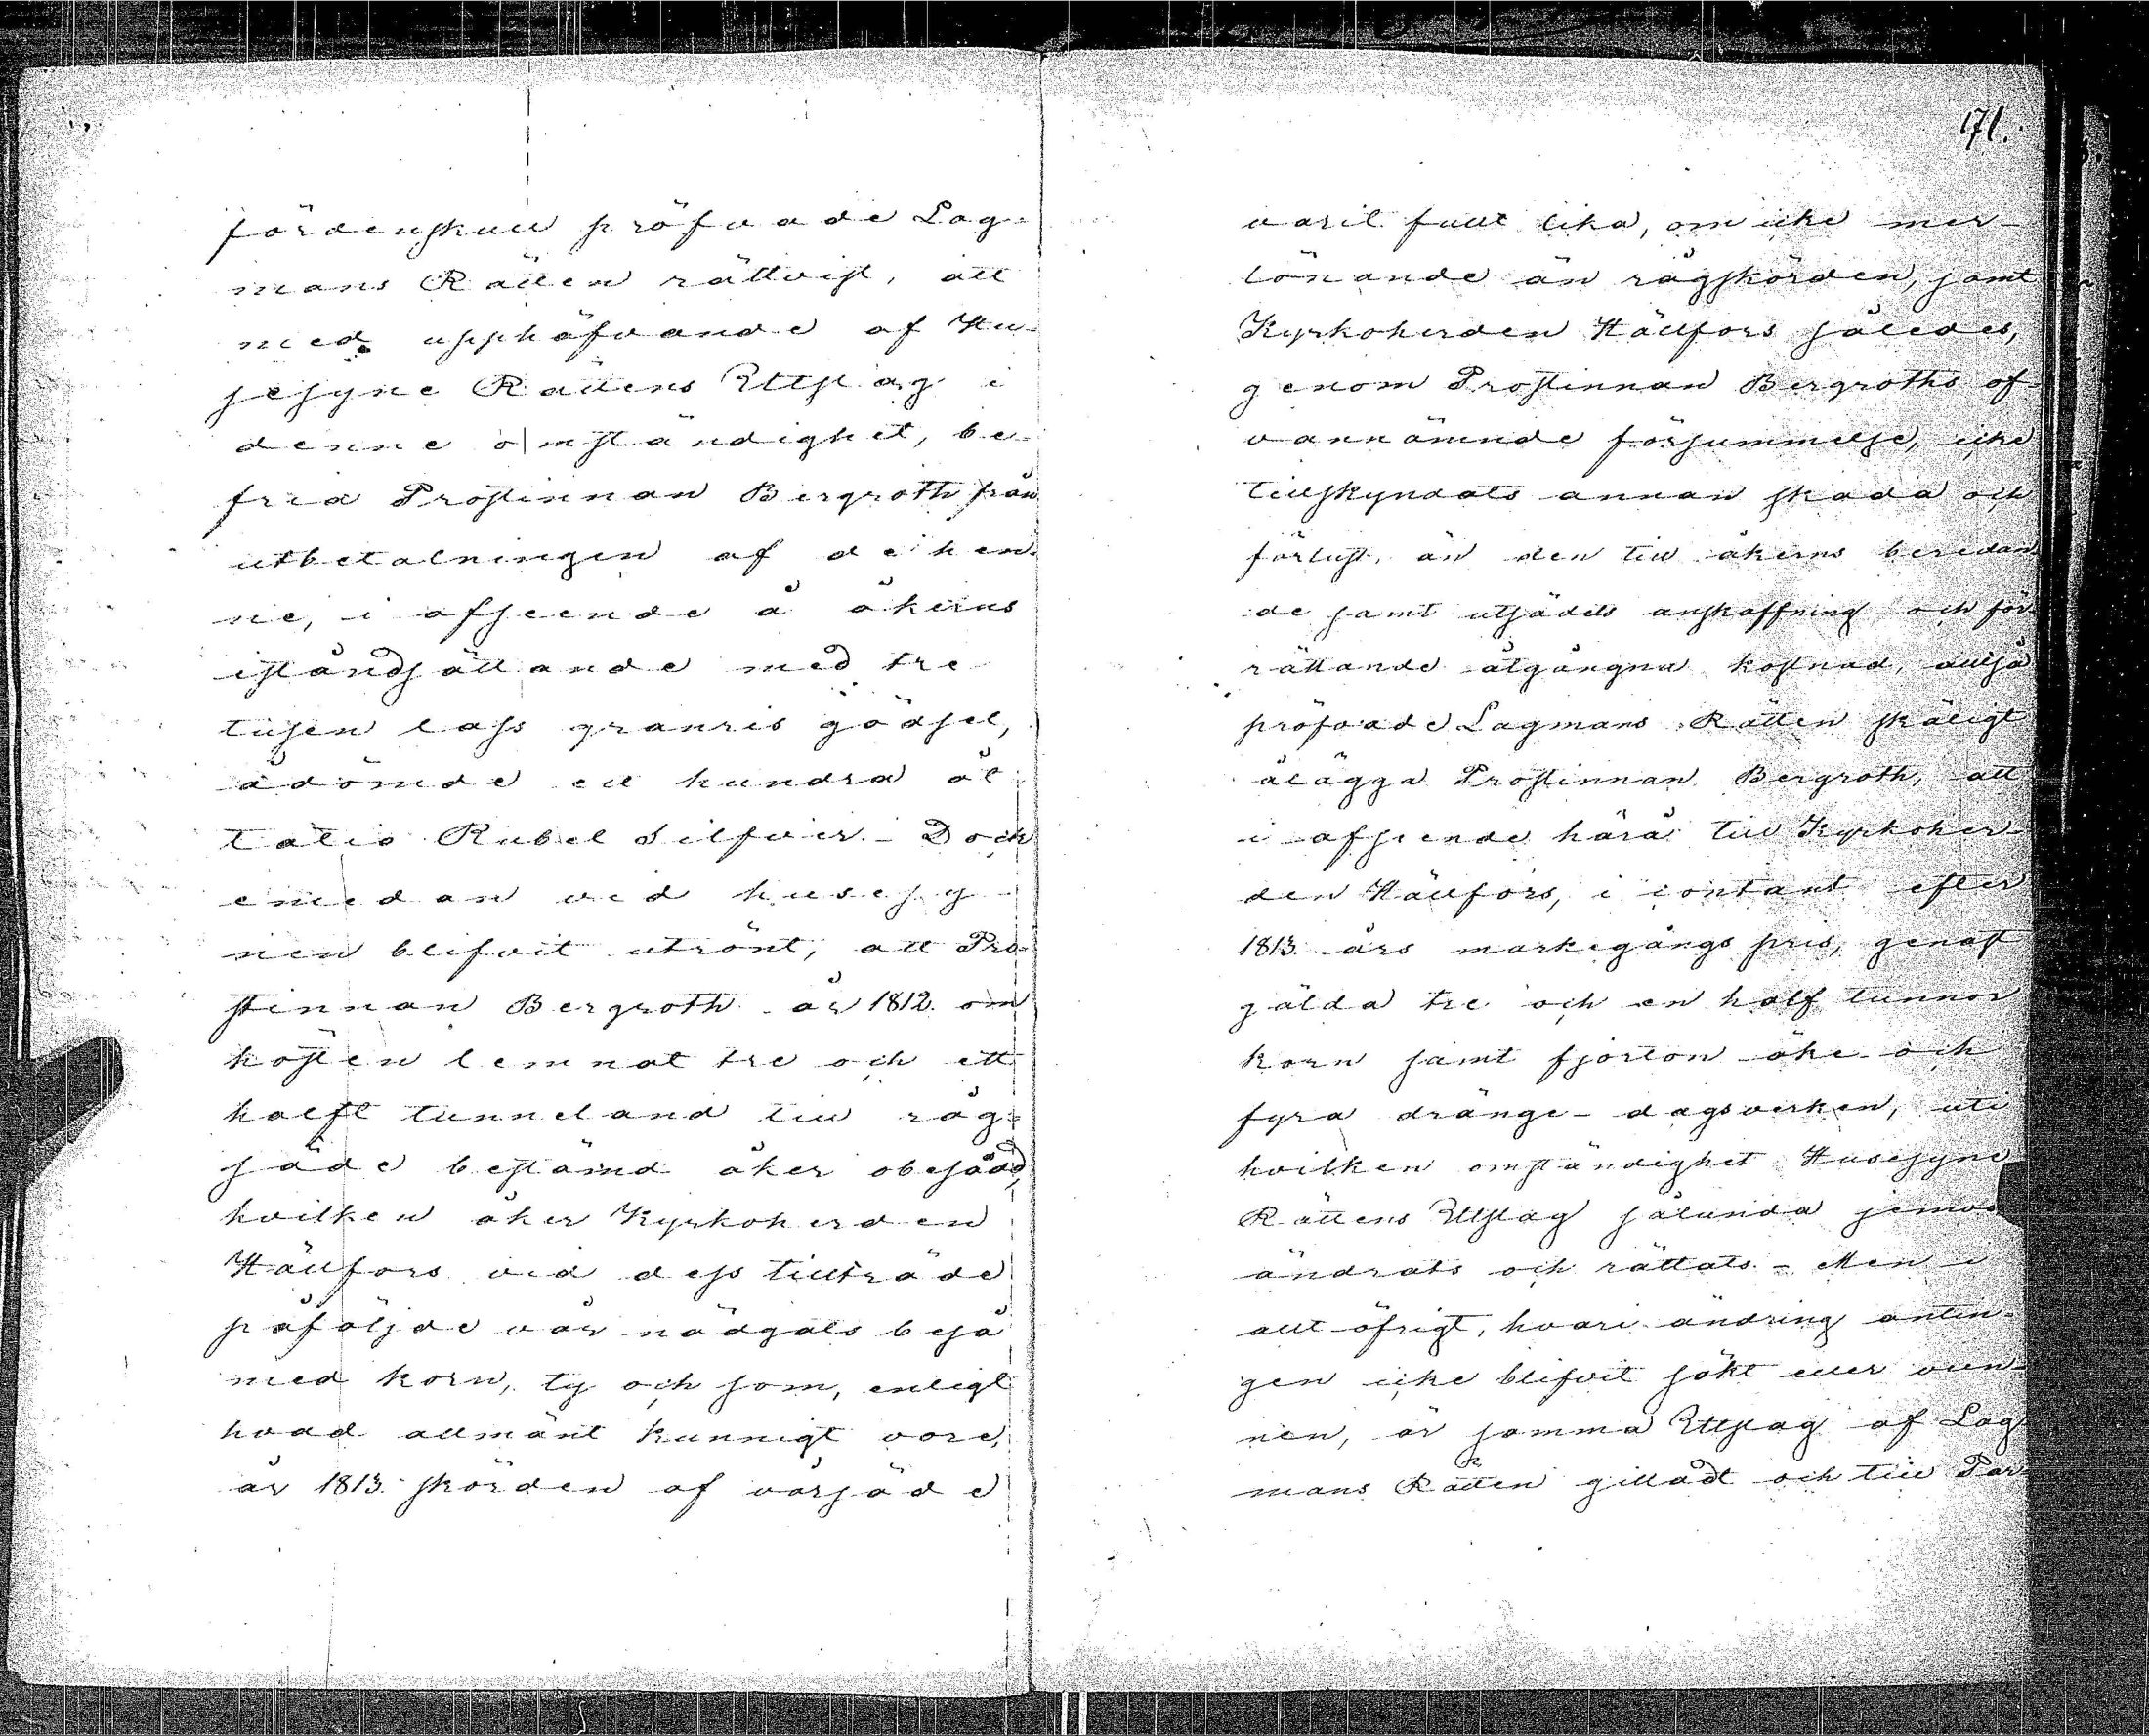 fördenskull pröfvade Lag-
mans Rätten rättvist, att
med upphäfvande af Hu-
sesyne Rättens Utslag i
denne omständighet, be-
fria Prostinnan Bergroth från
utbetalningen af de henne
ne, i afseende å åkerns
iståndsättande med tre
tusen lass granris gödsel,
ådömde ett hundra åt-
tatio Rubel Silfver. - Dock
emedan ved husesy-
nen blifvit utrönt, att Pro-
stinnan Bergroth år 1812. om
hösten lemnat tre och ett
halft tunneland till råg-
säde bestämd åker obesådd,
hvilken åker Kyrkoherden
Hällfors vid dess tillträde
påföljde vår nödgats beså
med korn, ty och som, enligt
hvad allmänt kunnigt vore,
år 1813. skörden af vårsäde
171.
varit fullt lika, om icke mer-
lönande än rågskörden, samt
Kyrkoherden Hällfors således,
genom Prostinnan Bergroths of-
vannämnde försummelse, icke
tillskyndats annan skada och
förlust, än den till åkerns beredan-
de samt utsädets anskaffning och för-
rättande åtgångna kostnad, alltså
pröfvade Lagmans Rätten skäligt
ålägga Prostinnan Bergroth, att
i afseende härå till Kyrkoher-
den Hällfors, i contant efter
1813. års markegångs pris, genast
gälda tre och en half tunnor
korn samt fjorton öke och
fyra dränge-dagsverken, uti
hvilken omständighet Husesyne
Rättens Utslag sålunda
ändrats och rättats. - Men i
allt öfrigt, hvari ändring antin-
gen icke blifvit sökt eller vun-
nen, är samma Utslag af Lag
mans Rätten gilladt och till Par-